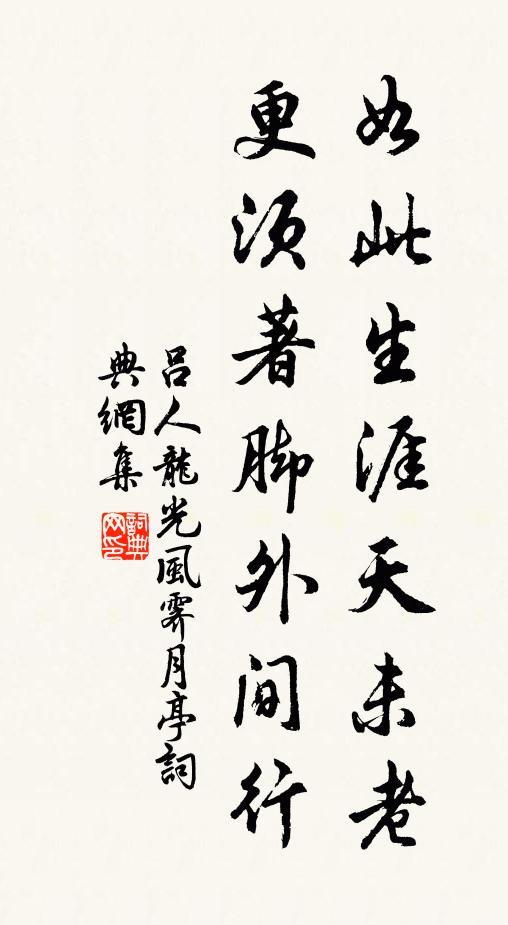 如此生涯天未老
更須著脚外間行
呂人龍光風霽月亭詞
典網集
詞典網印